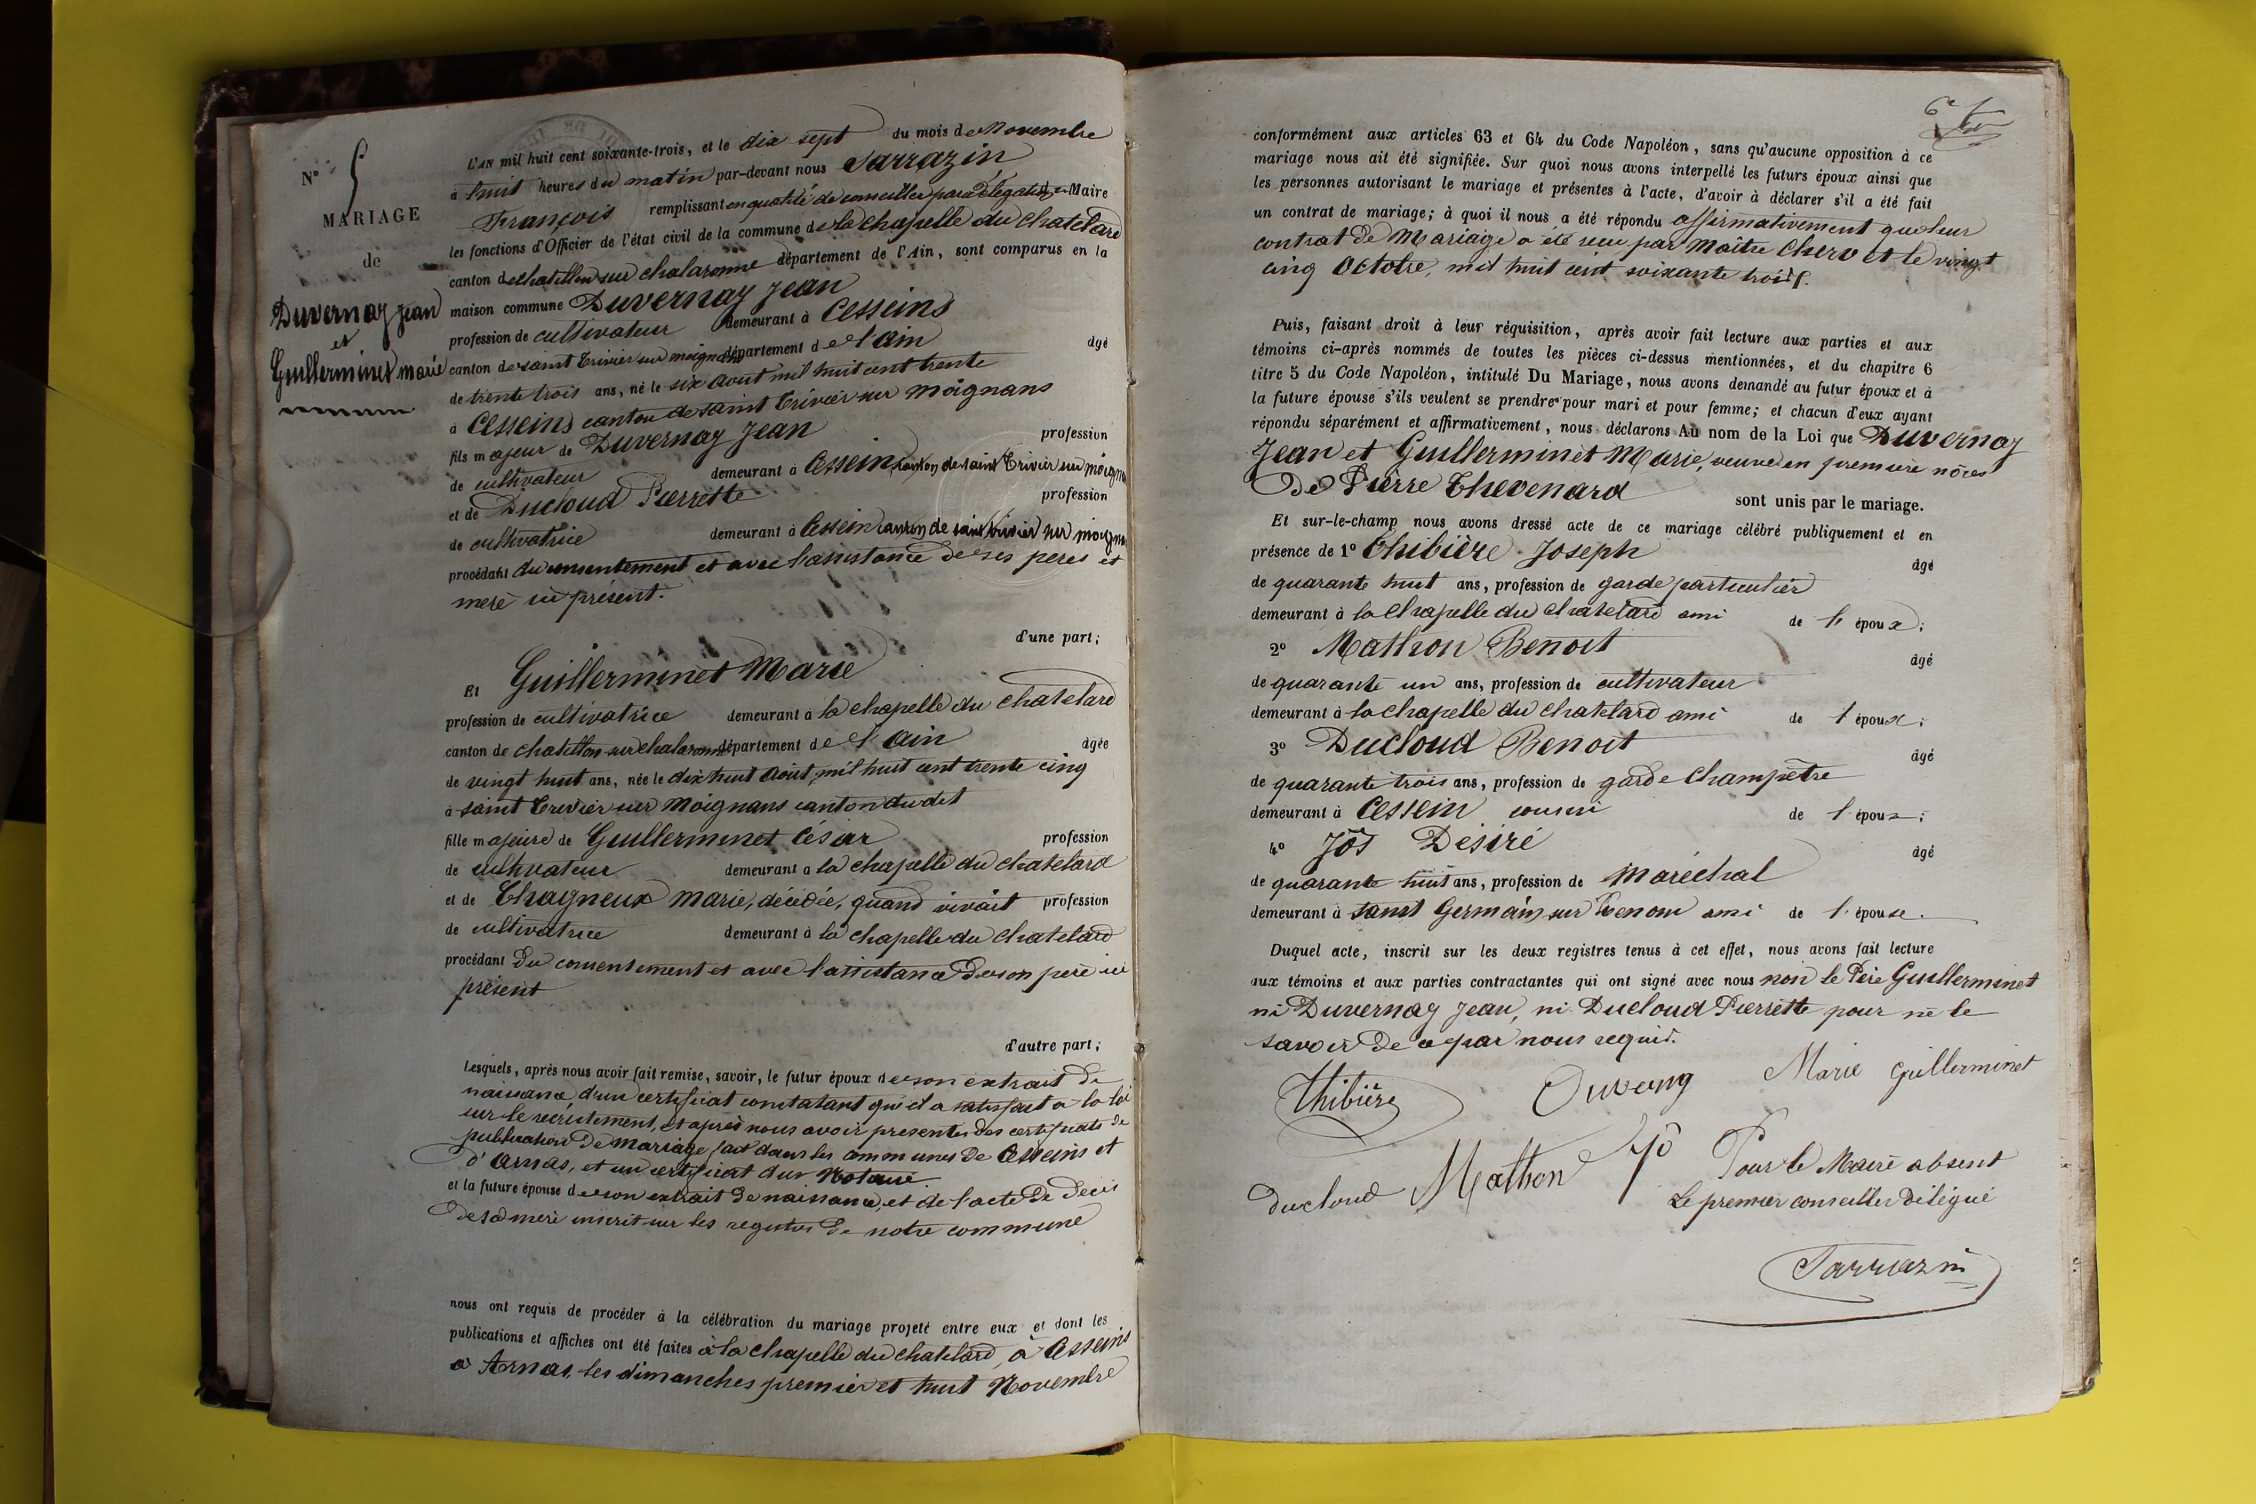 N° 5
MARIAGE
de
Duvernay Jean
et
Guillerminet marie
L'AN mil huit cent soixante-trois, et le dix sept du mois de Novembre
à huit heures du matin par-devant nous Sarrazin
François remplissant en qualité de conseiller par délégation Maire
les fonctions d'Officier de l'état civil de la commune de la chapelle du chatelard
canton de chatillon sur chalaronne département de l'Ain, sont comparus en la
maison commune Duvernay Jean
profession de cultivateur demeurant à Cesseins
canton de saint trivier sur moignans département de l'ain âgé
de trente trois ans, né le six aout mil huit cent trente
à Cesseins canton de saint trivier sur moignans
fils majeur de Duvernay Jean profession
de cultivateur demeurant à Cesseins, canton de saint trivier sur moign
et de Ducloud Pierrette profession
de cultivatrice demeurant à Cessein canton de saint trivier sur moign
procédant du consentement et avec l'assistance de ses peres et
mere ici présent.
d'une part;
Et Guillerminet Marie
profession de cultivatrice demeurant à la chapelle du chatelard
canton de chatillon sur chalaronne département de l'ain âgée
de vingt huit ans, née le dix huit Août mil huit cent trente cinq
à saint trivier sur moignans canton dudit
fille majeure de Guillerminet César profession
de cultivateur demeurant a la chapelle du chatelard
et de Chagneux Marie, décédée, quand vivait profession
de cultivatrice demeurant à la chapelle du chatelard
procédant Du consentement et avec l'assistance de son pere ici
présent
d'autre part;
Lesquels, après nous avoir fait remise, savoir, le futur époux de son extrait de
naissance, d'un certificat constatant qu'il a satisfait a la loi
sur le recrutement, et après nous avoir presenté des certificats de
publication de mariage fait dans les communes de Cesseins et
d'arnas, et un certificat du Notaire
et la future épouse de son extrait de naissance, et de l'acte de décès
de sa mere inscrit sur les registres de notre commune
nous ont requis de procéder à la célébration du mariage projeté entre eux et dont les
publications et affiches ont été faites à la chapelle du chatelard, à Cesseins
a Arnas, les dimanches premier et huit Novembre
conformément aux articles 63 et 64 du Code Napoléon, sans qu'aucune opposition à ce
mariage nous ait été signifiée. Sur quoi nous avons interpellé les futurs époux ainsi que
les personnes autorisant le mariage et présentes à l'acte, d'avoir à déclarer s'il a été fait
un contrat de mariage; à quoi il nous a été répondu affirmativement que leur
contrat de Mariage a été reçu par Maître Chervet le vingt
cinq Octobre, mil huit cent soixante trois.
Puis, faisant droit à leur réquisition, après avoir fait lecture aux parties et aux
témoins ci-après nommés de toutes les pièces ci-dessus mentionnées, et du chapitre 6
titre 5 du Code Napoléon, intitulé Du Mariage, nous avons demandé au futur époux et à
la future épouse s'ils veulent se prendre pour mari et pour femme; et chacun d'eux ayant
répondu séparément et affirmativement, nous déclarons Au nom de la Loi que Duvernay
Jean et Guillerminet Marie, veuve en premiere nôces
De Pierre Thevenard sont unis par le mariage.
Et sur-le-champ nous avons dressé acte de ce mariage célébré publiquement et en
présence de 1° Thibière Joseph âgé
de quarante huit ans, profession de garde particulier
demeurant à la Chapelle du chatelard ami de l'époux;
2° Mathon Benoit âgé
de quarante un ans, profession de cultivateur
demeurant à la chapelle du chatelard ami de l'époux;
3° Ducloud Benoit âgé
de quarante trois ans, profession de garde champêtre
demeurant à Cessein cousin de l'époux;
4° Jôs Désiré âgé
de quarante huit ans, profession de Maréchal
demeurant à saint Germain sur Renom ami de l'épouse.
Duquel acte, inscrit sur les deux registres tenus à cet effet, nous avons fait lecture
aux témoins et aux parties contractantes qui ont signé avec nous non le Père Guillerminet
ni Duvernay Jean, ni Ducloud Pierrette pour ne le
savoir de ce par nous requis.
Thibière Duverny Marie guillerminet
ducloud Mathon Jô Pour le Maire absent
Le premier conseiller délégué
Sarrazin